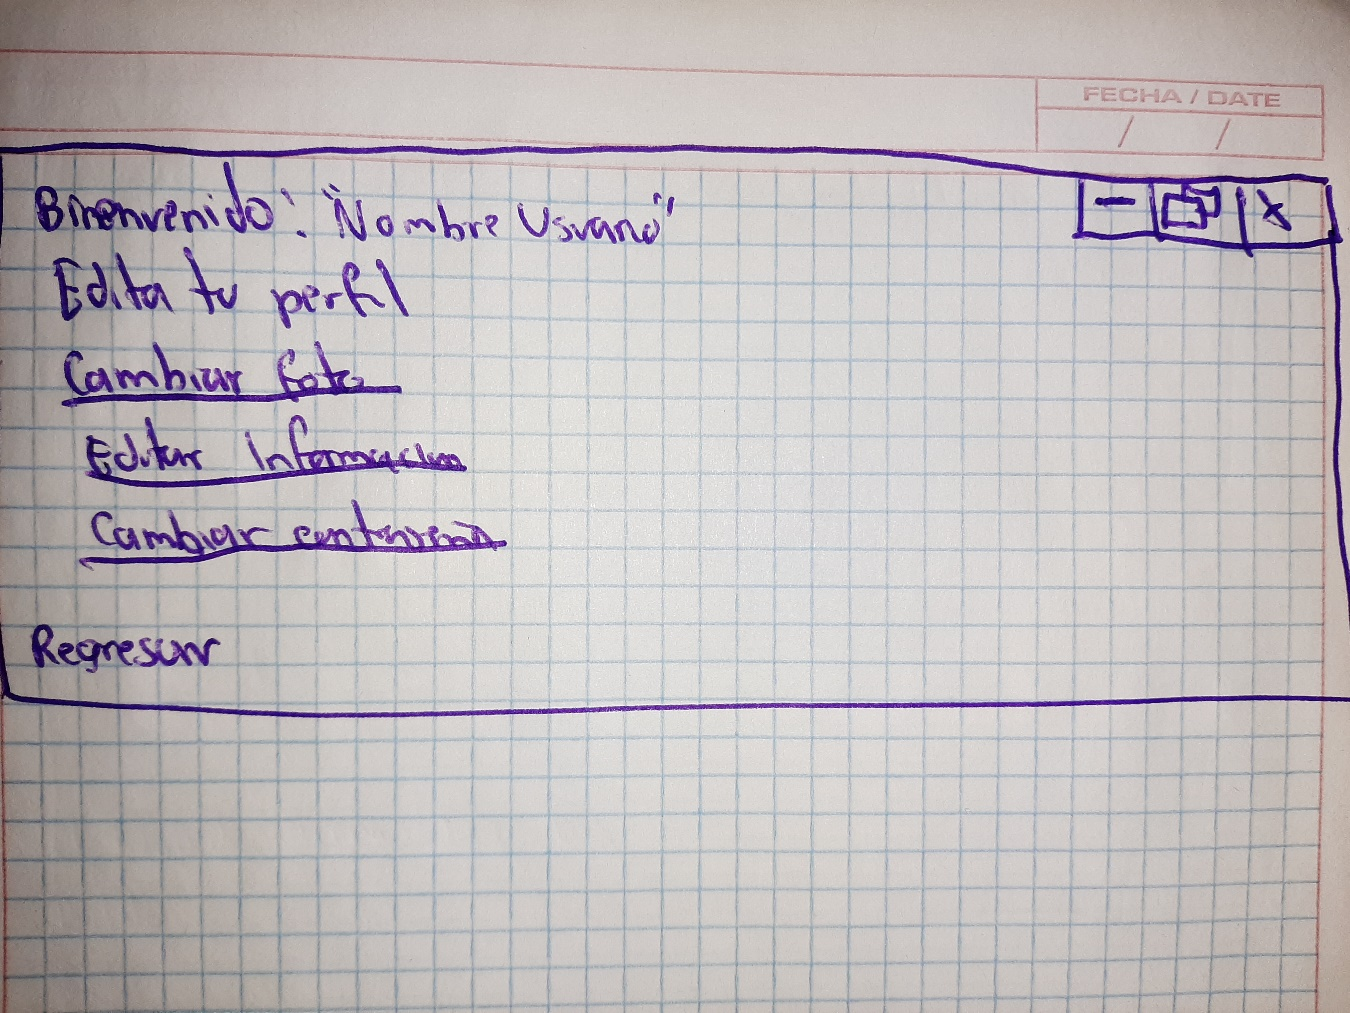 FECHA / DATE
/ /
Binenvenido: "Nombre Usuario"
Edita tu perfil
Cambiar foto
Editar Informacion
Cambiar contraseña
Regresar